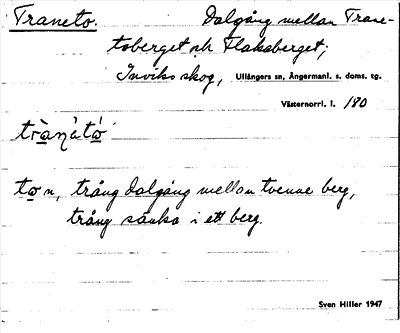 Traneto. Dalgång mellan Trane-
toberget och Flaksberget;
Inviks skog, Ullångers sn, Ångermanl. s. doms. tg.
Västernorrl. l. 180
to n, trång dalgång mellan tvenne berg,
trång sänka i ett berg.
Sven Hiller 1947